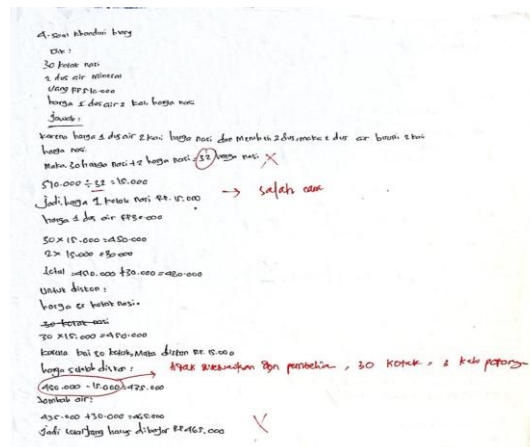 4. Soal khondisi barang
Dik :
30 kotak nasi
2 dus air mineral
Uang RP 510.000
harga 1 dus air 2 kali harga nasi
Jawab :
Karena harga 1 dus air 2 kali harga nasi dan Membeli 2 dus, maka 2 dus air 2 kali
harga nasi.
Maka 30 harga nasi + 2 harga nasi = 32 harga nasi X
510.000 ÷ 32 = 15.000 → salah cara
Jadi, harga 1 kotak nasi RP. 15.000
harga 1 dus air RP 30.000
30 X 15.000 = 450.000
2 X 15.000 = 30.000
total = 450.000 + 30.000 = 480.000
Untuk diskon :
harga kotak nasi =
30 kotak nasi
30 X 15.000 = 450.000
Karena beli 30 kotak, Maka diskon RP. 15.000
harga setelah diskon : tidak sesuaikan dgn pembelian, 30 kotak, 3 kali potongan
450.000 - 15.000 = 435.000
air :
435.000 + 30.000 = 465.000
Jadi uang yang harus dibayar RP 465.000 X